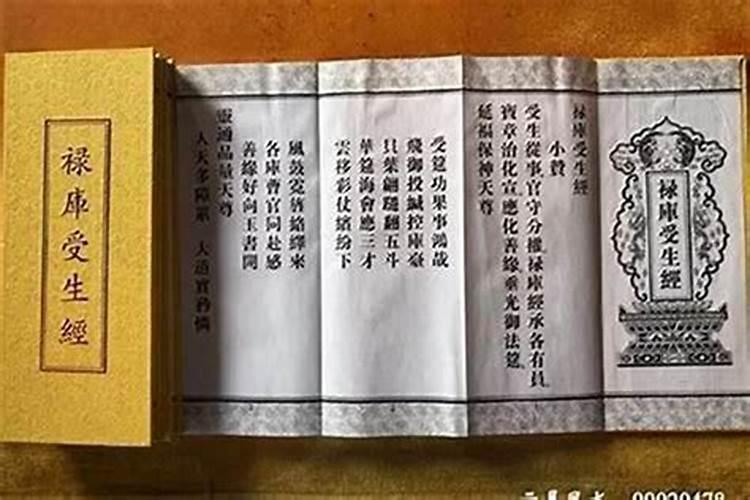 祿庫受生經
祿庫受生經
祿庫受生經
小贊
受生從事官守分權祿庫經承各有員
寶章治化宣應化善緣垂光御法筵
延福保神天尊
受筵功果事鴻哉
飛御投緘控庫臺
貝葉翩翻五斗
華筵海會應三才
雲移彩仗繽紛下
風鼓霓旌絡繹來
各庫曹官同赴感
善緣好向玉書開
靈通品量天尊
人天多障罪 大道實矜憐
90029478